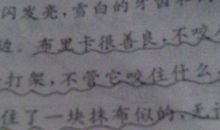 闪发亮,雪白的牙齿和
边。布里卡很善良,不咬
打架,不管它咬住什么
住了一块抹布似的,无